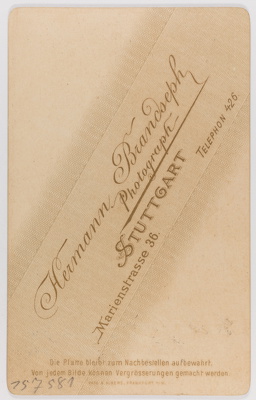 Hermann Brandseph
Photograph
STUTTGART
Marienstrasse 36.
TELEPHON 426
Die Platte bleibt zum Nachbestellen aufbewahrt.
Von jedem Bilde können Vergrösserungen gemacht werden.
157581